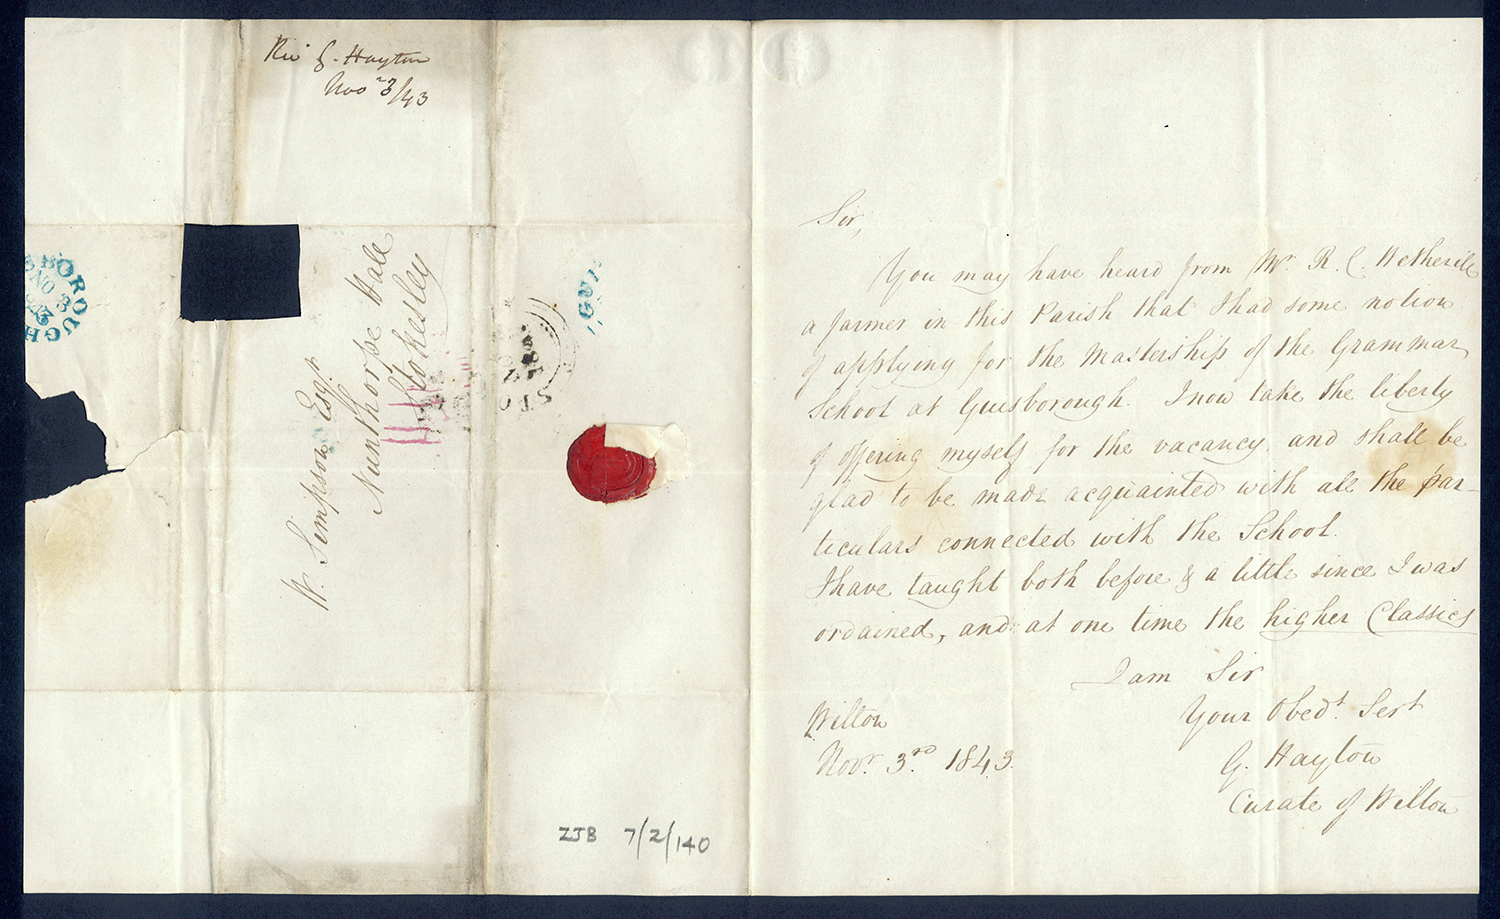 Revd G. Hayton
Novr 3/43
W. Simpson Esqr
Nunthorpe Hall
Stokesley
BOROUGH
NO 3
1843
GUI
STO
ZJB 7/2/140
Sir,
You may have heard from Mr. R. C. Wetherill
a farmer in this Parish that I had some notion
of applying for the Mastership of the Grammar
School at Guisborough. I now take the liberty
of offering myself for the vacancy and shall be
glad to be made acquainted with all the par-
ticulars connected with the School.
I have taught both before & a little since I was
ordained, and at one time the higher Classics
I am Sir
Your Obedt. Sert
G. Hayton
Curate of Wilton
Wilton
Novr. 3rd 1843.